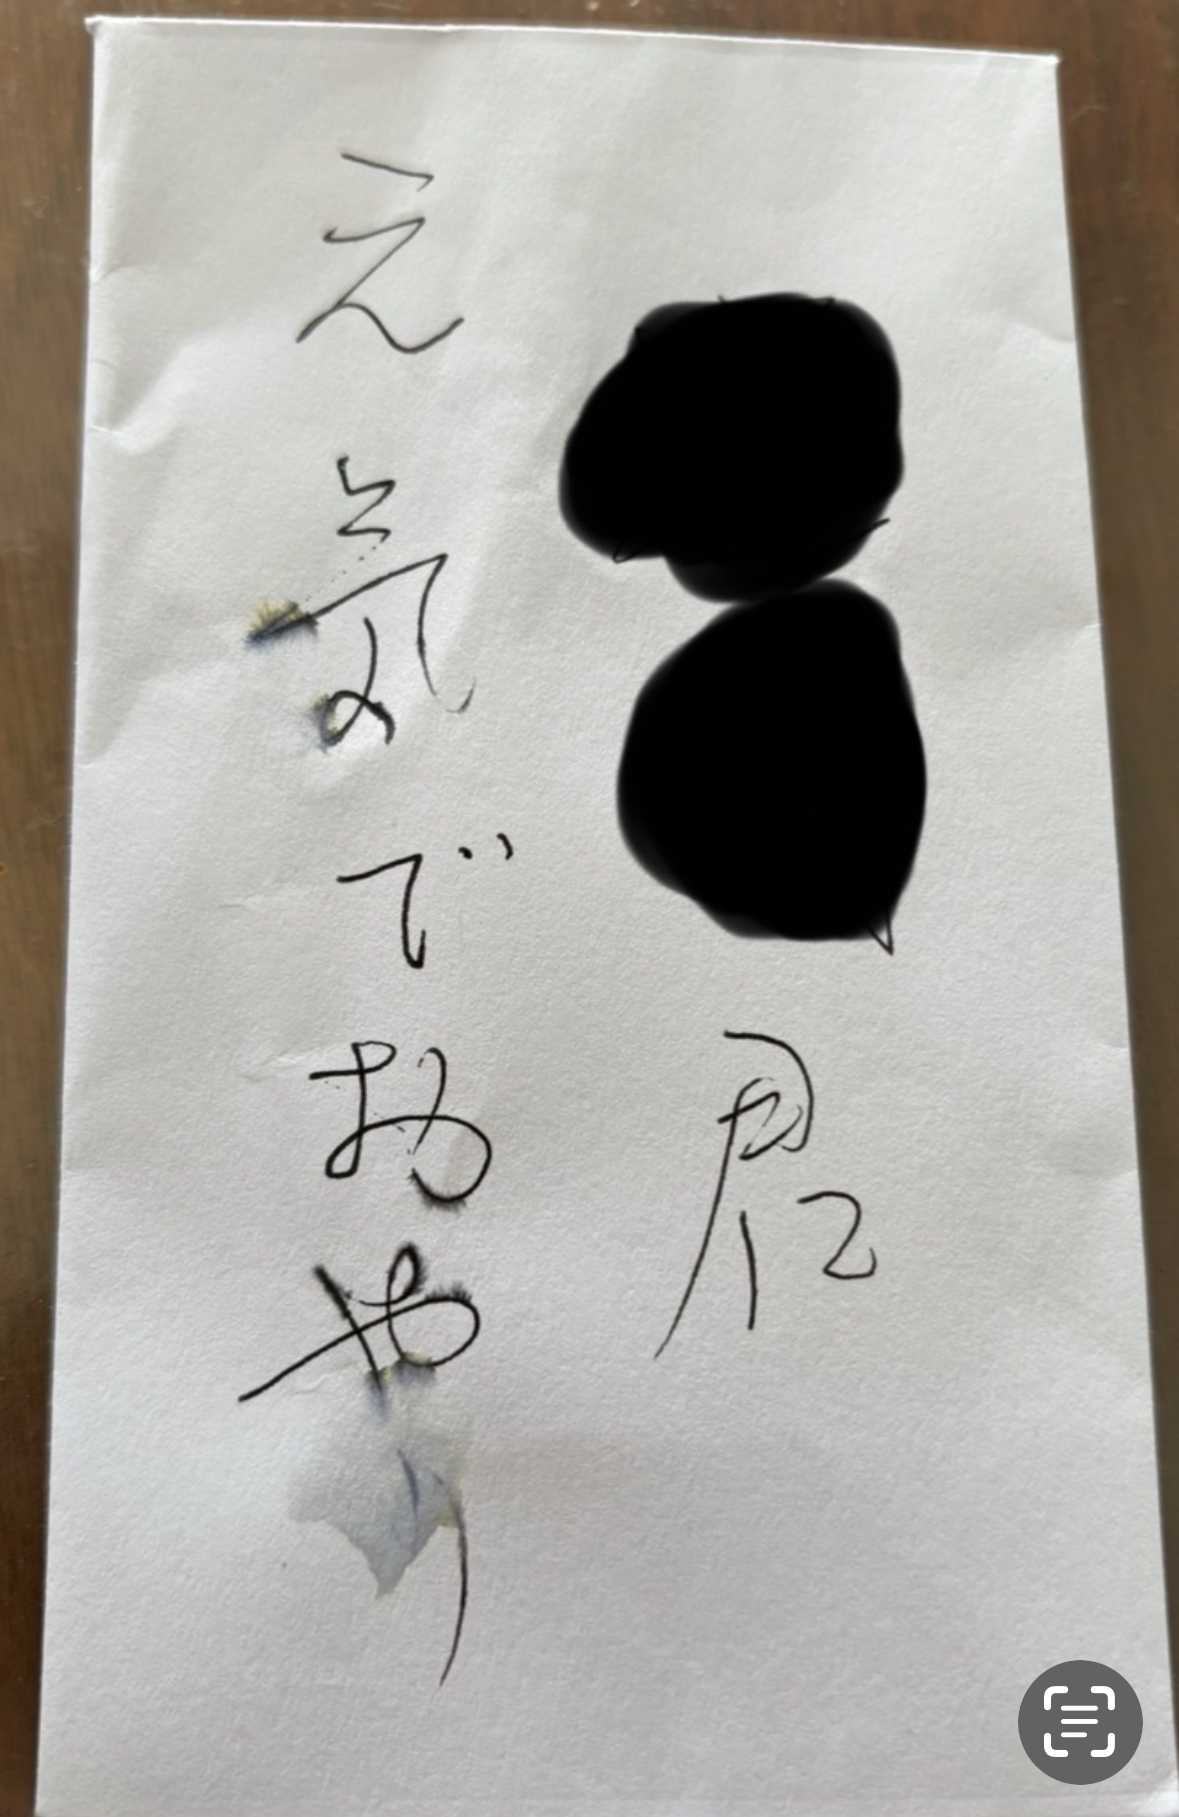 君
元気でおやり